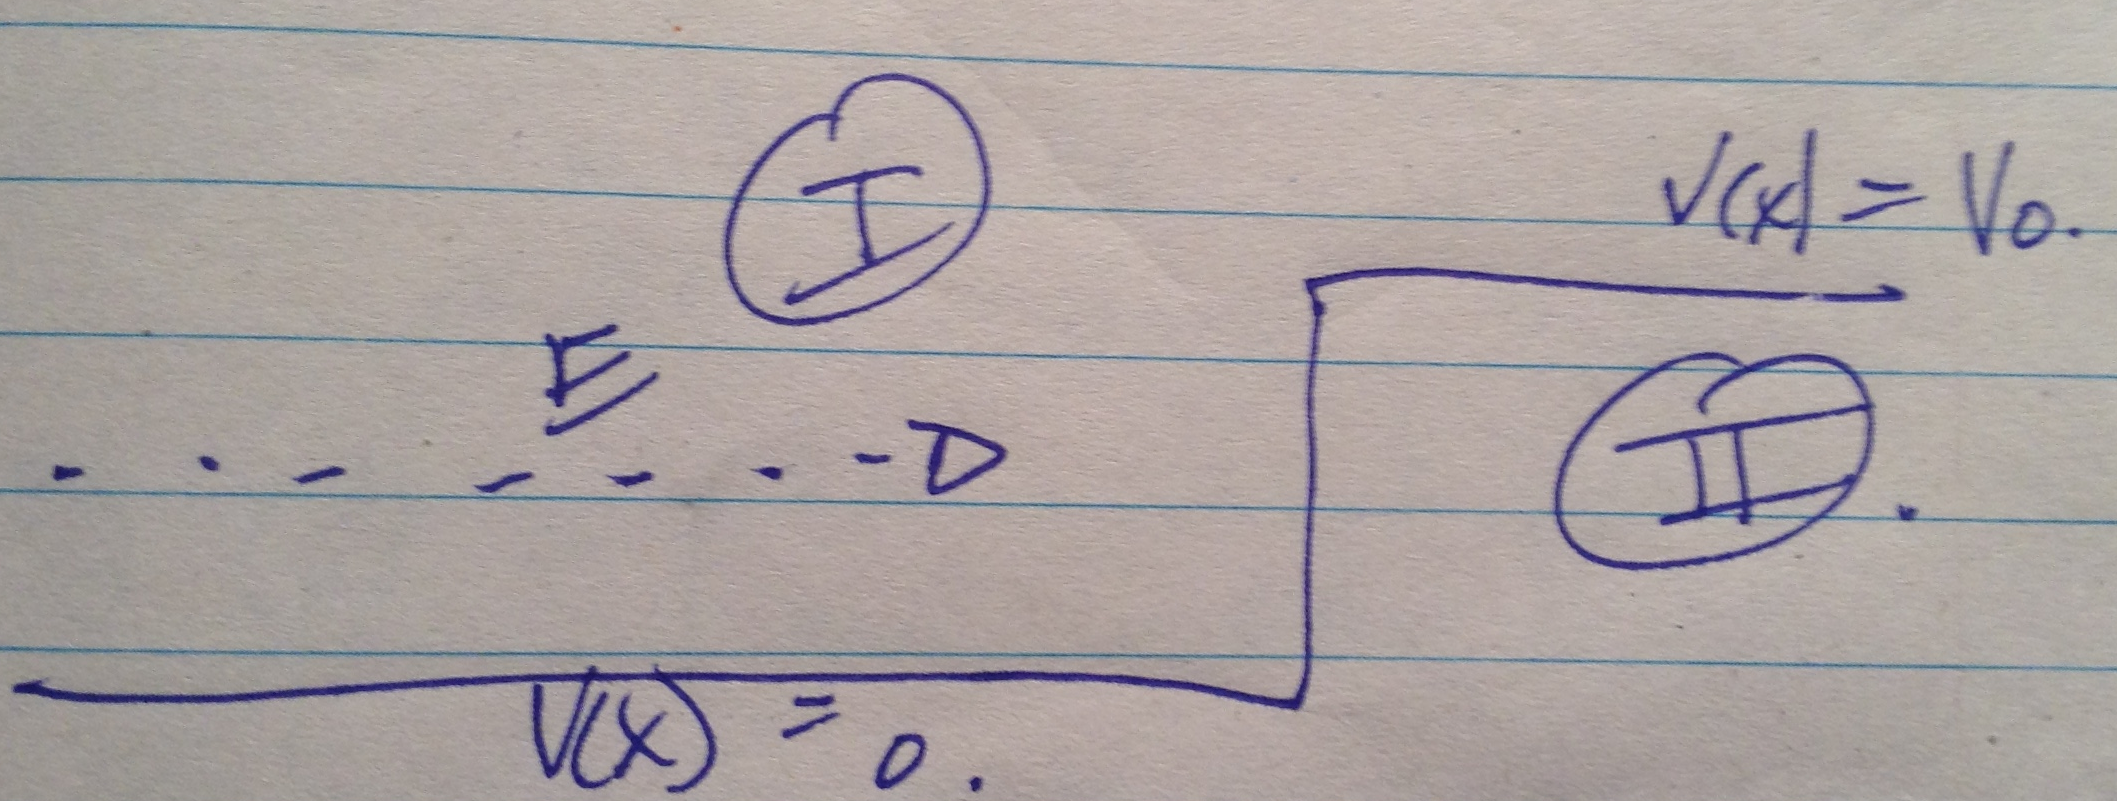 I
V(x) = V0.
E
II.
V(x) = 0.